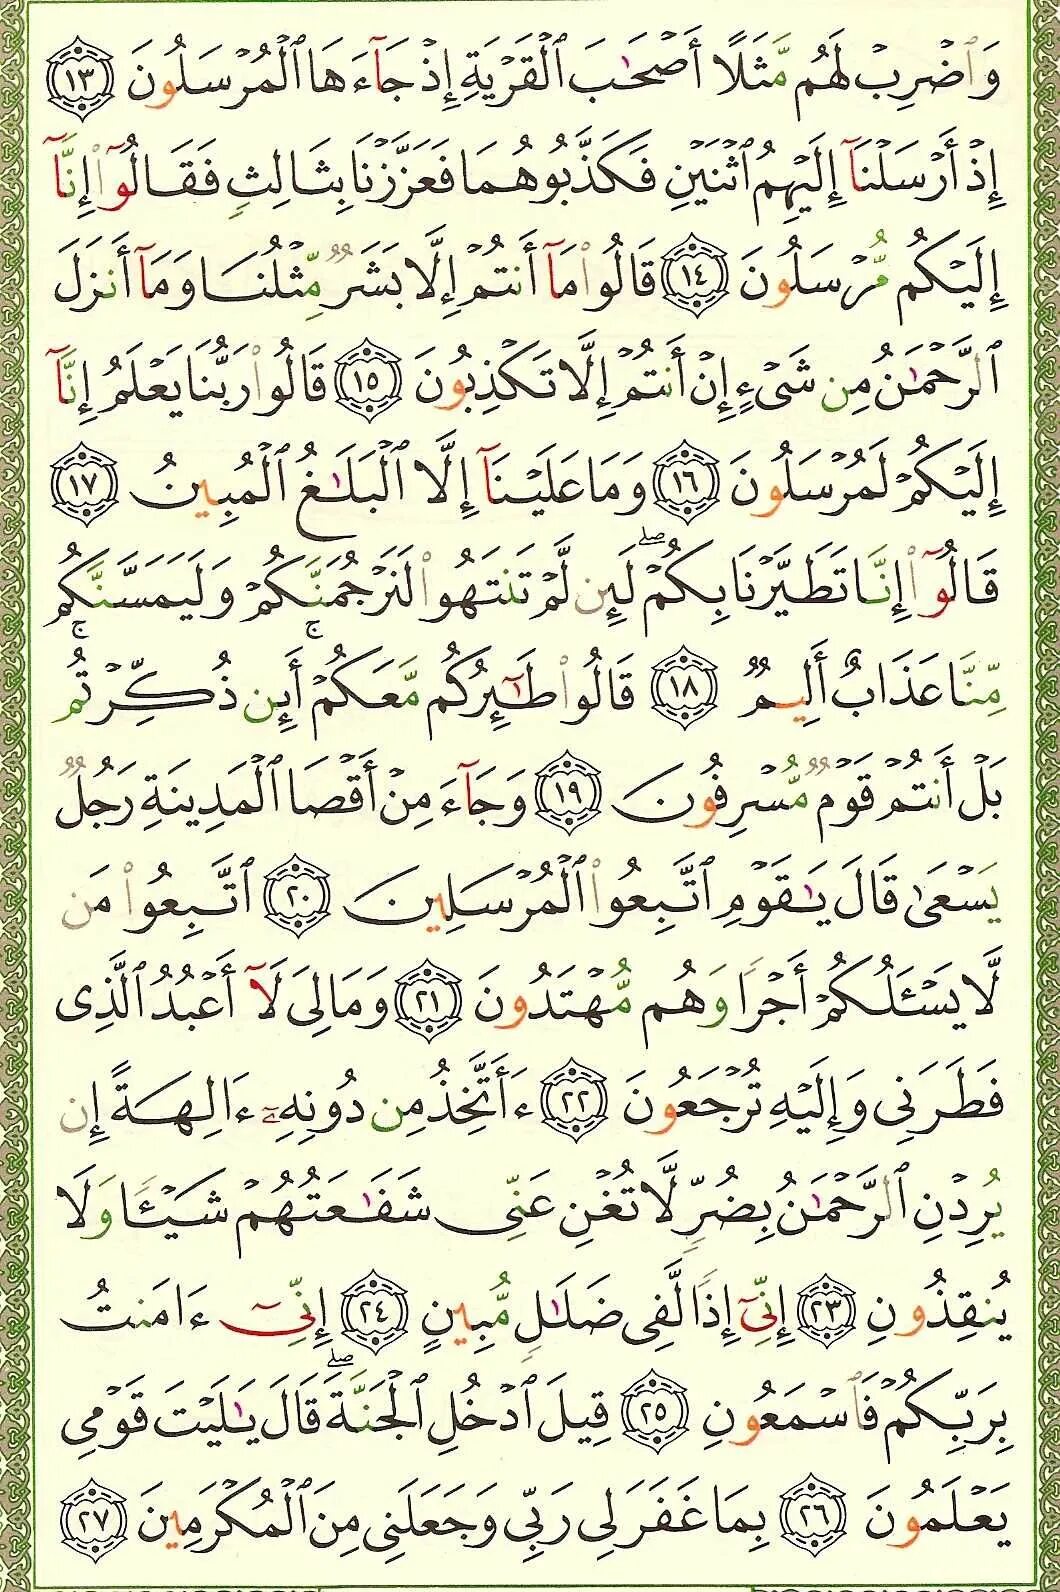 وَٱضْرِبْ لَهُم مَّثَلًا أَصْحَـٰبَ ٱلْقَرْيَةِ إِذْ جَآءَهَا ٱلْمُرْسَلُونَ ١٣
إِذْ أَرْسَلْنَآ إِلَيْهِمُ ٱثْنَيْنِ فَكَذَّبُوهُمَا فَعَزَّزْنَا بِثَالِثٍ فَقَالُوٓا۟ إِنَّآ
إِلَيْكُم مُّرْسَلُونَ ١٤ قَالُوا۟ مَآ أَنتُمْ إِلَّا بَشَرٌ مِّثْلُنَا وَمَآ أَنزَلَ
ٱلرَّحْمَـٰنُ مِن شَىْءٍ إِنْ أَنتُمْ إِلَّا تَكْذِبُونَ ١٥ قَالُوا۟ رَبُّنَا يَعْلَمُ إِنَّآ
إِلَيْكُمْ لَمُرْسَلُونَ ١٦ وَمَا عَلَيْنَآ إِلَّا ٱلْبَلَـٰغُ ٱلْمُبِينُ ١٧
قَالُوٓا۟ إِنَّا تَطَيَّرْنَا بِكُمْ ۖ لَئِن لَّمْ تَنتَهُوا۟ لَنَرْجُمَنَّكُمْ وَلَيَمَسَّنَّكُم
مِّنَّا عَذَابٌ أَلِيمٌ ١٨ قَالُوا۟ طَـٰٓئِرُكُم مَّعَكُمْ ۚ أَئِن ذُكِّرْتُم ۚ
بَلْ أَنتُمْ قَوْمٌ مُّسْرِفُونَ ١٩ وَجَآءَ مِنْ أَقْصَا ٱلْمَدِينَةِ رَجُلٌ
يَسْعَىٰ قَالَ يَـٰقَوْمِ ٱتَّبِعُوا۟ ٱلْمُرْسَلِينَ ٢٠ ٱتَّبِعُوا۟ مَن
لَّا يَسْـَٔلُكُمْ أَجْرًا وَهُم مُّهْتَدُونَ ٢١ وَمَا لِىَ لَآ أَعْبُدُ ٱلَّذِى
فَطَرَنِى وَإِلَيْهِ تُرْجَعُونَ ٢٢ ءَأَتَّخِذُ مِن دُونِهِۦٓ ءَالِهَةً إِن
يُرِدْنِ ٱلرَّحْمَـٰنُ بِضُرٍّ لَّا تُغْنِ عَنِّى شَفَـٰعَتُهُمْ شَيْـًٔا وَلَا
يُنقِذُونِ ٢٣ إِنِّىٓ إِذًا لَّفِى ضَلَـٰلٍ مُّبِينٍ ٢٤ إِنِّىٓ ءَامَنتُ
بِرَبِّكُمْ فَٱسْمَعُونِ ٢٥ قِيلَ ٱدْخُلِ ٱلْجَنَّةَ ۖ قَالَ يَـٰلَيْتَ قَوْمِى
يَعْلَمُونَ ٢٦ بِمَا غَفَرَ لِى رَبِّى وَجَعَلَنِى مِنَ ٱلْمُكْرَمِينَ ٢٧